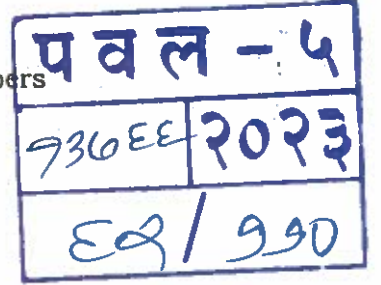 pers
प व ल - ५
१३७६६ २०२३
६२ / ११०